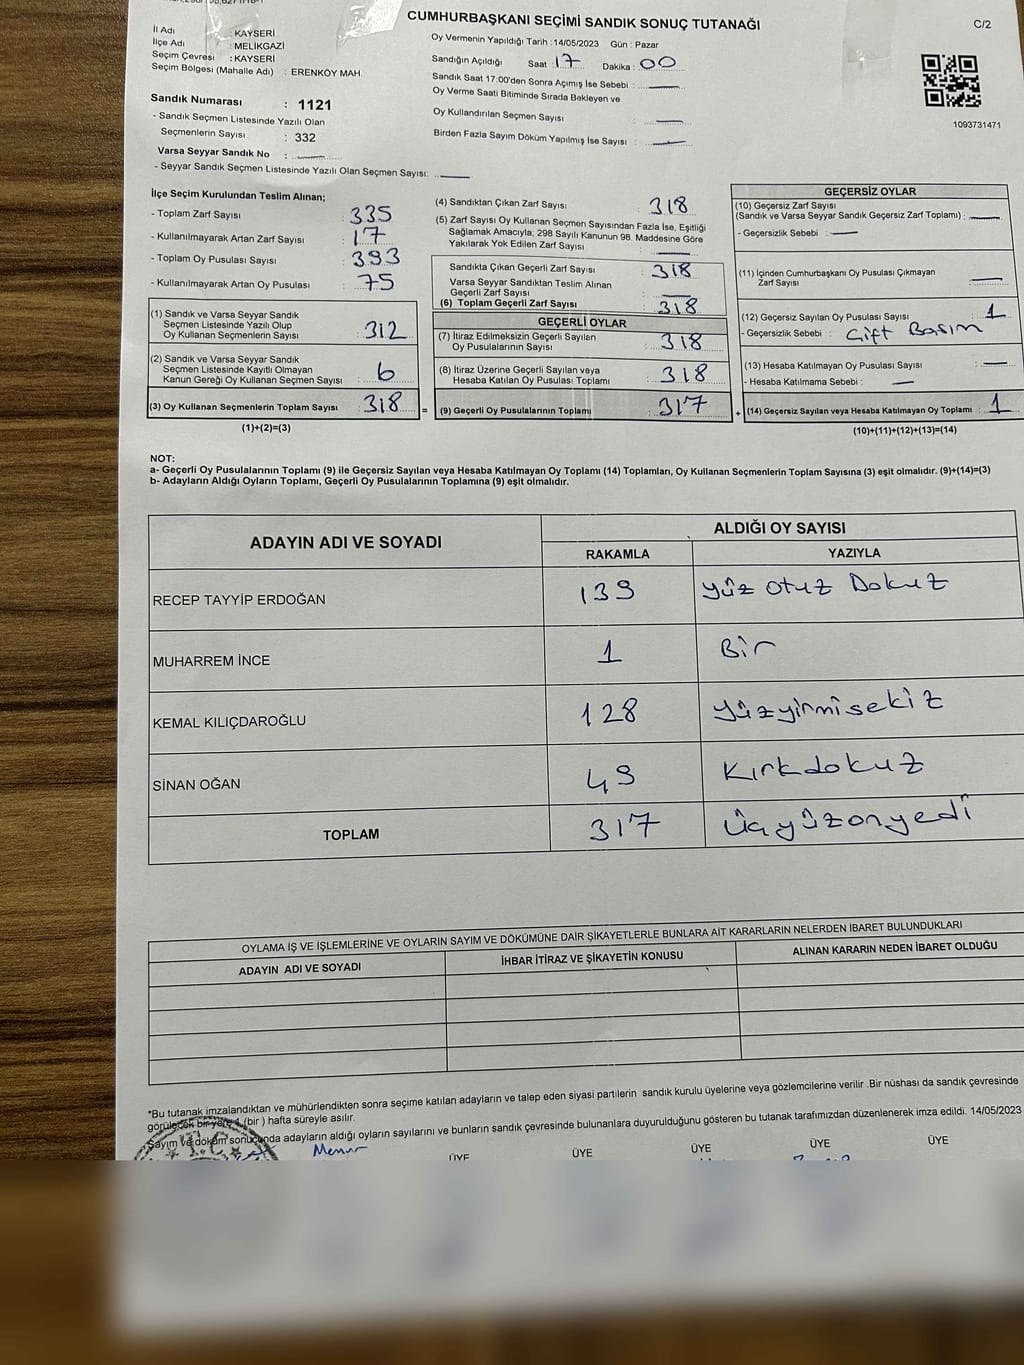 CUMHURBAŞKANI SEÇİMİ SANDIK SONUÇ TUTANAĞI
C/2
İl Adı : KAYSERİ
İlçe Adı : MELİKGAZİ
Seçim Çevresi : KAYSERİ
Seçim Bölgesi (Mahalle Adı) : ERENKÖY MAH.
Sandık Numarası : 1121
- Sandık Seçmen Listesinde Yazılı Olan
Seçmenlerin Sayısı : 332
Varsa Seyyar Sandık No :
- Seyyar Sandık Seçmen Listesinde Yazılı Olan Seçmen Sayısı:
Oy Vermenin Yapıldığı Tarih :14/05/2023 Gün : Pazar
Sandığın Açıldığı Saat : 17 Dakika : 00
Sandık Saat 17:00'den Sonra Açımış İse Sebebi :
Oy Verme Saati Bitiminde Sırada Bekleyen ve
Oy Kullandırılan Seçmen Sayısı :
Birden Fazla Sayım Döküm Yapılmış İse Sayısı :
1093731471
İlçe Seçim Kurulundan Teslim Alınan;
- Toplam Zarf Sayısı : 335
- Kullanılmayarak Artan Zarf Sayısı : 17
- Toplam Oy Pusulası Sayısı : 393
- Kullanılmayarak Artan Oy Pusulası : 75
(1) Sandık ve Varsa Seyyar Sandık
Seçmen Listesinde Yazılı Olup
Oy Kullanan Seçmenlerin Sayısı : 312
(2) Sandık ve Varsa Seyyar Sandık
Seçmen Listesinde Kayıtlı Olmayan
Kanun Gereği Oy Kullanan Seçmen Sayısı : 6
(3) Oy Kullanan Seçmenlerin Toplam Sayısı : 318
(1)+(2)=(3)
(4) Sandıktan Çıkan Zarf Sayısı : 318
(5) Zarf Sayısı Oy Kullanan Seçmen Sayısından Fazla İse, Eşitliği
Sağlamak Amacıyla; 298 Sayılı Kanunun 98. Maddesine Göre
Yakılarak Yok Edilen Zarf Sayısı :
Sandıkta Çıkan Geçerli Zarf Sayısı : 318
Varsa Seyyar Sandıktan Teslim Alınan
Geçerli Zarf Sayısı :
(6) Toplam Geçerli Zarf Sayısı : 318
GEÇERLİ OYLAR
(7) İtiraz Edilmeksizin Geçerli Sayılan
Oy Pusulalarının Sayısı : 318
(8) İtiraz Üzerine Geçerli Sayılan veya
Hesaba Katılan Oy Pusulası Toplamı : 318
= (9) Geçerli Oy Pusulalarının Toplamı : 317
GEÇERSİZ OYLAR
(10) Geçersiz Zarf Sayısı
(Sandık ve Varsa Seyyar Sandık Geçersiz Zarf Toplamı) :
- Geçersizlik Sebebi :
(11) İçinden Cumhurbaşkanı Oy Pusulası Çıkmayan
Zarf Sayısı :
(12) Geçersiz Sayılan Oy Pusulası Sayısı : 1
- Geçersizlik Sebebi : Çift Basım
(13) Hesaba Katılmayan Oy Pusulası Sayısı :
- Hesaba Katılmama Sebebi :
+ (14) Geçersiz Sayılan veya Hesaba Katılmayan Oy Toplamı : 1
(10)+(11)+(12)+(13)=(14)
NOT:
a- Geçerli Oy Pusulalarının Toplamı (9) ile Geçersiz Sayılan veya Hesaba Katılmayan Oy Toplamı (14) Toplamları, Oy Kullanan Seçmenlerin Toplam Sayısına (3) eşit olmalıdır. (9)+(14)=(3)
b- Adayların Aldığı Oyların Toplamı, Geçerli Oy Pusulalarının Toplamına (9) eşit olmalıdır.
ADAYIN ADI VE SOYADI
ALDIĞI OY SAYISI
RAKAMLA YAZIYLA
RECEP TAYYİP ERDOĞAN 139 Yüz Otuz Dokuz
MUHARREM İNCE 1 Bir
KEMAL KILIÇDAROĞLU 128 yüzyirmisekiz
SİNAN OĞAN 49 Kırkdokuz
TOPLAM 317 Üçyüzonyedi
OYLAMA İŞ VE İŞLEMLERİNE VE OYLARIN SAYIM VE DÖKÜMÜNE DAİR ŞİKAYETLERLE BUNLARA AİT KARARLARIN NELERDEN İBARET BULUNDUKLARI
ADAYIN ADI VE SOYADI İHBAR İTİRAZ VE ŞİKAYETİN KONUSU ALINAN KARARIN NEDEN İBARET OLDUĞU
*Bu tutanak imzalandıktan ve mühürlendikten sonra seçime katılan adayların ve talep eden siyasi partilerin sandık kurulu üyelerine veya gözlemcilerine verilir .Bir nüshası da sandık çevresinde
görülecek bir yere 1 (bir ) hafta süreyle asılır.
Sayım ve döküm sonucunda adayların aldığı oyların sayılarını ve bunların sandık çevresinde bulunanlara duyurulduğunu gösteren bu tutanak tarafımızdan düzenlenerek imza edildi. 14/05/2023
T.C.
ÜYE ÜYE ÜYE ÜYE ÜYE